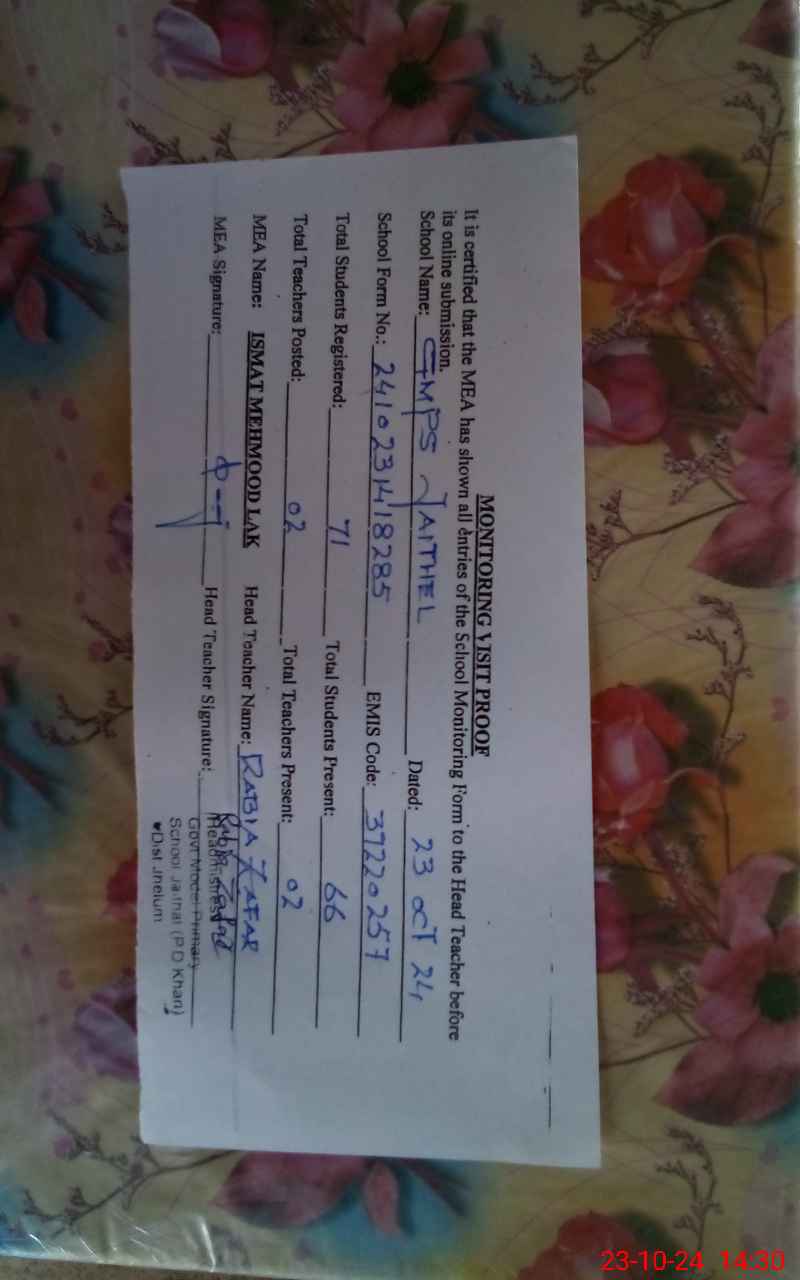 MONITORING VISIT PROOF
It is certified that the MEA has shown all entries of the School Monitoring Form to the Head Teacher before
its online submission.
School Name: GMPS JAITHEL Dated: 23 OCT 24
School Form No.: 2410231418285 EMIS Code: 37220257
Total Students Registered: 71 Total Students Present: 66
Total Teachers Posted: 02 Total Teachers Present: 02
MEA Name: ISMAT MEHMOOD LAK Head Teacher Name: RABIA ZAFAR
MEA Signature: Head Teacher Signature: Rabia Zafar
Headmistress
Govt Model Primary
School Jaithal (P.D Khan)
Dist Jhelum
23-10-24 14:30